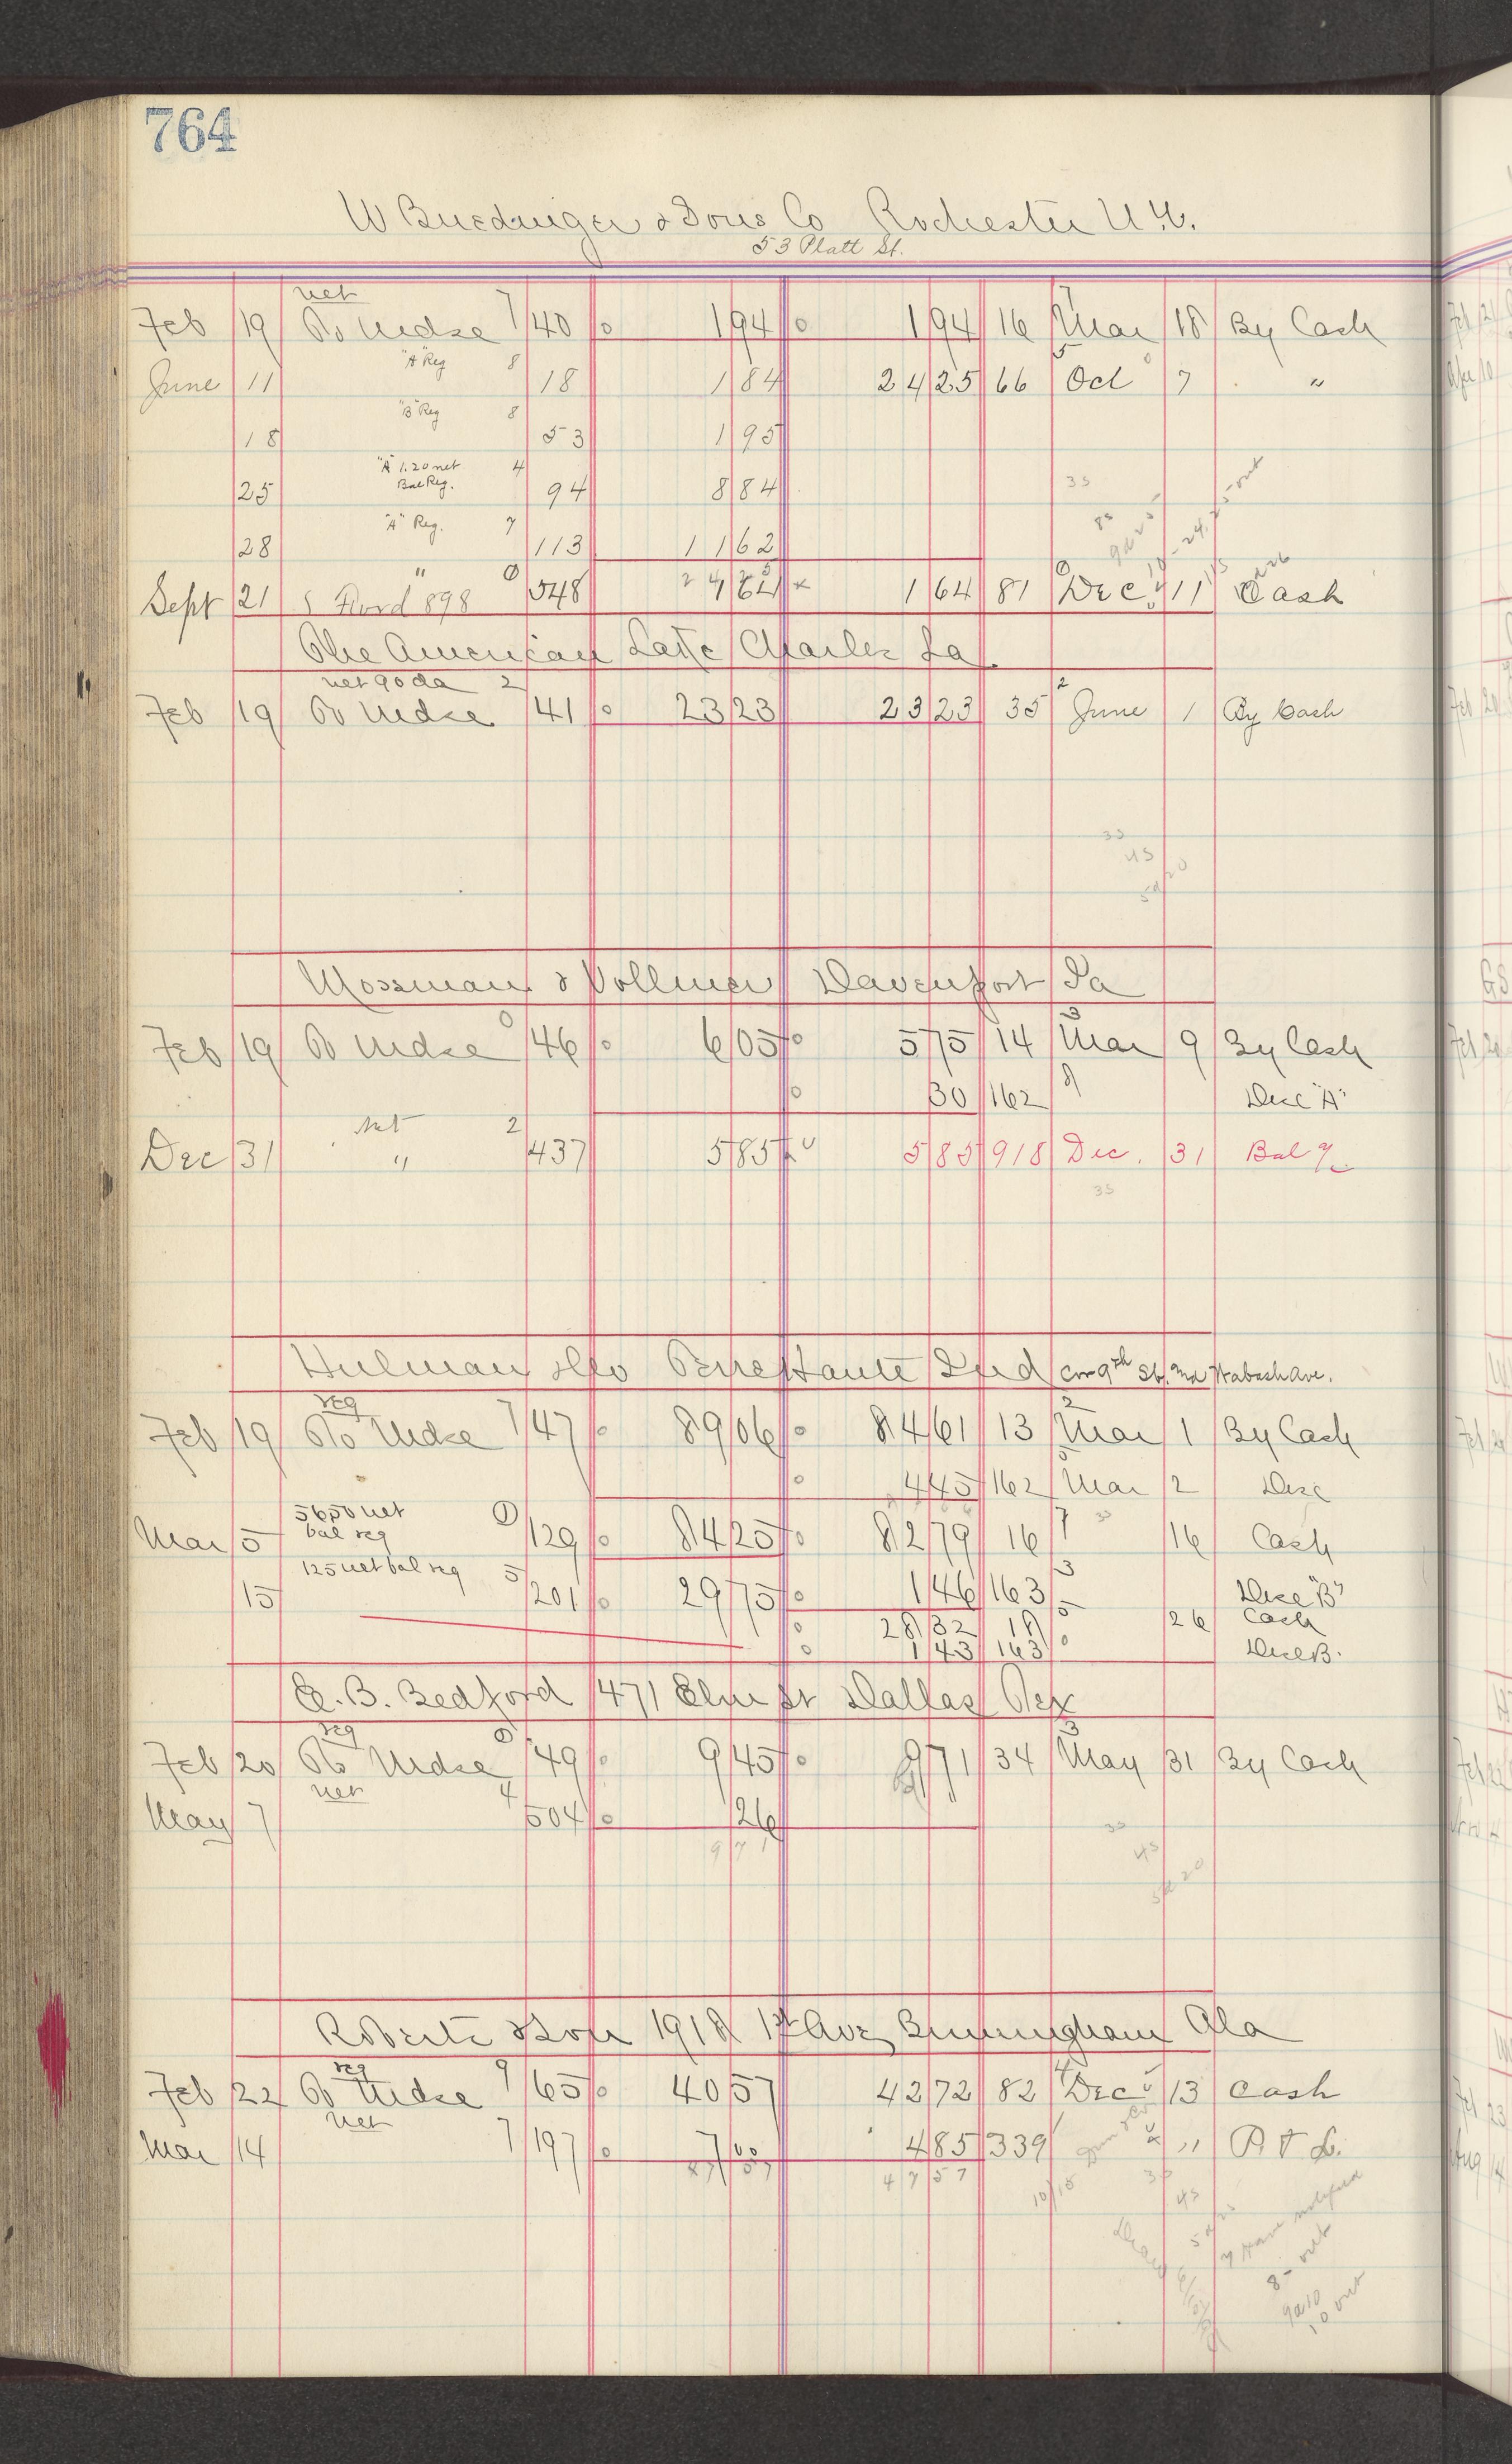 764
W Buedinger & Sons Co Rochester N.Y.
53 Platt St.
net 7
Feb 19 To Mdse 40 1 94 1 94 16 Mar 18 By Cash
"A" Reg 8
June 11 18 1 84 24 25 66 Oct 7 "
"B" Reg 8
18 53 1 95
"A" 1.20 net 4
Bal Reg.
25 94 8 84
"A" Reg. 7
28 113 11 62
Sept 21 " 898 548 1 64 81 Dec 11 Cash
The American Lake Charles La
net 90 da 2
Feb 19 To Mdse 41 23 23 23 23 35 June 1 By Cash
Mossman & Vollmer Davenport Ia
Feb 19 To Mdse 46 6 05 5 75 14 Mar 9 By Cash
30 162 Disc "A"
net 2
Dec 31 " 437 5 85 5 85 918 Dec. 31 Bal
35
Hulman & Co Terre Haute Ind cor 9th St. and Wabash Ave.
reg 7
Feb 19 To Mdse 47 89 06 84 61 13 Mar 1 By Cash
4 45 162 Mar 2 Disc
56 50 net
bal reg
Mar 5 129 84 25 82 79 16 16 Cash
125 net bal reg 5
15 201 29 75 1 46 163 Disc "B"
28 32 18 26 Cash
1 43 163 Disc B.
E. B. Bedford 471 Elm St Dallas Tex
reg
Feb 20 To Mdse 49 9 45 9 71 34 May 31 By Cash
net 4
May 7 504 26
9 71
Roberts & Son 1918 1st Ave Birmingham Ala
reg 9
Feb 22 To Mdse 65 40 57 42 72 82 Dec 13 Cash
net 7
Mar 14 197 7 00 4 85 339 " P & L.
47 57 47 57